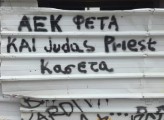 ΑΕΚ ΦΕΤΑ
ΚΑΙ Judas Priest
Κασετα